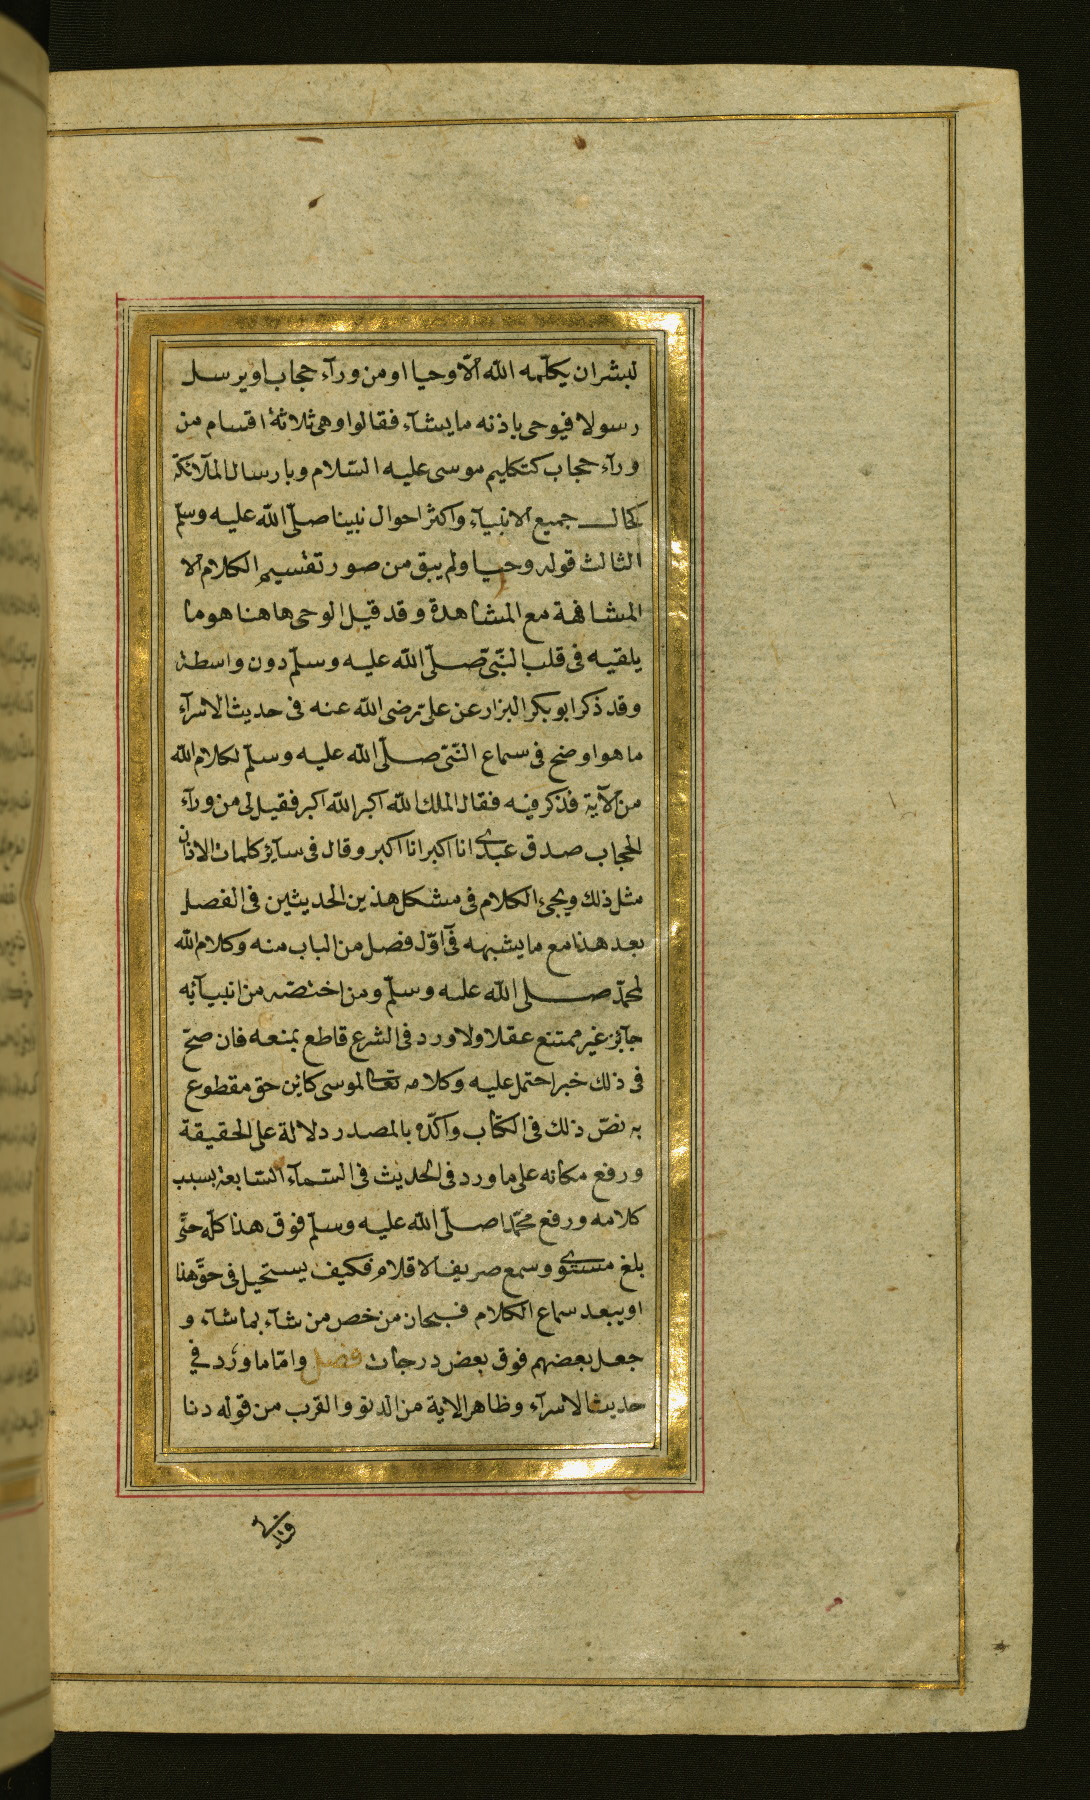 لبشر ان يكلّمه الله الّا وحيا او من ورآء حجاب او يرسل
رسولا فيوحى باذنه ما يشآء فقالوا وهى ثلاثة اقسام من
ورآء حجاب كتكليم موسى عليه السّلام وبارسال الملآئكة
كحال جميع الانبيآء واكثر احوال نبينا صلّى الله عليه وسلّم
الثالث قوله وحيا ولم يبق من صور تقسيم الكلام الا
المشافهة مع المشاهدة وقد قيل الوحى هاهنا هو ما
يلقيه فى قلب النّبىّ صلّى الله عليه وسلّم دون واسطة
وقد ذكر ابو بكر البزار عن على رضى الله عنه فى حديث الاسرآء
ما هو اوضح فى سماع النّبىّ صلّى الله عليه وسلّم لكلام الله
من الآية فذكر فيه فقال الملك الله اكبر الله اكبر فقيل لى من ورآء
الحجاب صدق عبدى انا اكبر انا اكبر وقال فى سآئر كلمات الاذان
مثل ذلك ويجىء الكلام فى مشكل هذين الحديثين فى الفصل
بعد هذا مع ما يشبهه فى اوّل فصل من الباب منه وكلام الله
لمحمّد صلى الله عليه وسلّم ومن اختصّه من انبيآئه
جآئز غير ممتنع عقلا ولا ورد فى الشرع قاطع يمنعه فان صحّ
فى ذلك خبر احتمل عليه وكلامه تعالى لموسى كائن حق مقطوع
به نصّ ذلك فى الكتاب واكّده بالمصدر دلالة على الحقيقة
ورفع مكانه على ما ورد فى الحديث فى السّمآء السّابعة بسبب
كلامه ورفع محمّدا صلّى الله عليه وسلّم فوق هذا كلّه حتّى
بلغ مستوى وسمع صريف الاقلام فكيف يستحيل فى حقّ هذا
او يبعد سماع الكلام فسبحان من خص من شآء بما شآء و
جعل بعضهم فوق بعض درجات فصل وامّا ما ورد في
حديث الاسرآء وظاهر الاية من الدنوّ والقرب من قوله دنا